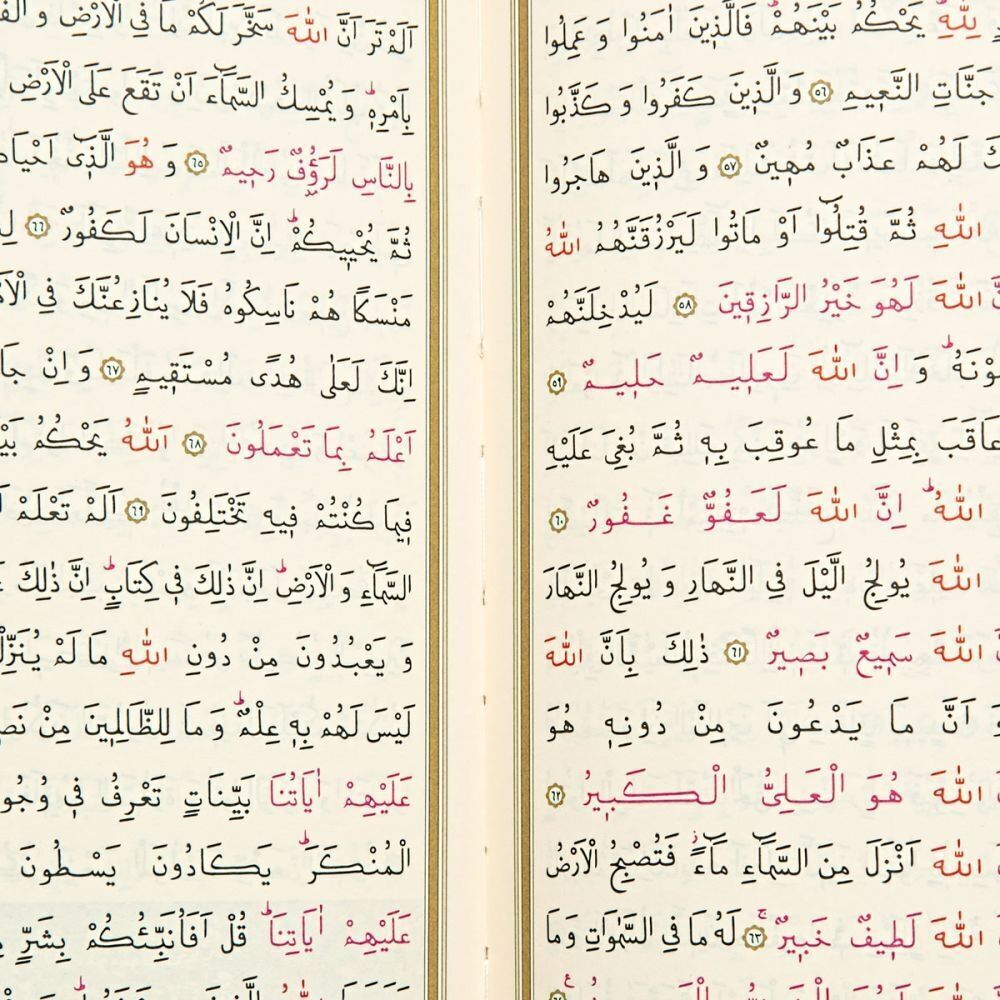 لِلّٰهِ يَحْكُمُ بَيْنَهُمْ فَالَّذ۪ينَ اٰمَنُوا وَ عَمِلُوا
جَنَّاتِ النَّع۪يمِ ٥٦ وَ الَّذ۪ينَ كَفَرُوا وَ كَذَّبُوا
لَهُمْ عَذَابٌ مُه۪ينٌ ٥٧ وَ الَّذ۪ينَ هَاجَرُوا
اللّٰهِ ثُمَّ قُتِلُٓوا اَوْ مَاتُوا لَيَرْزُقَنَّهُمُ اللّٰهُ
اللّٰهَ لَهُوَ خَيْرُ الرَّازِق۪ينَ ٥٨ لَيُدْخِلَنَّهُمْ
وَ اِنَّ اللّٰهَ لَعَل۪يمٌ حَل۪يمٌ ٥٩
عَاقَبَ بِمِثْلِ مَا عُوقِبَ بِه۪ ثُمَّ بُغِيَ عَلَيْهِ
اللّٰهُۜ اِنَّ اللّٰهَ لَعَفُوٌّ غَفُورٌ ٦٠
اللّٰهَ يُولِجُ الَّيْلَ فِي النَّهَارِ وَ يُولِجُ النَّهَارَ
اللّٰهَ سَم۪يعٌ بَص۪يرٌ ٦١ ذٰلِكَ بِاَنَّ اللّٰهَ
وَ اَنَّ مَا يَدْعُونَ مِنْ دُونِه۪ هُوَ
اللّٰهَ هُوَ الْعَلِيُّ الْكَب۪يرُ ٦٢
اللّٰهَ اَنْزَلَ مِنَ السَّمَٓاءِ مَٓاءًۘ فَتُصْبِحُ الْاَرْضُ
اللّٰهَ لَط۪يفٌ خَب۪يرٌۚ ٦٣ لَهُ مَا فِي السَّمٰوَاتِ وَ مَا
اَلَمْ تَرَ اَنَّ اللّٰهَ سَخَّرَ لَكُمْ مَا فِي الْاَرْضِ وَ
بِاَمْرِه۪ۜ وَ يُمْسِكُ السَّمَٓاءَ اَنْ تَقَعَ عَلَى الْاَرْضِ
بِالنَّاسِ لَرَؤُ۫فٌ رَح۪يمٌ ٦٥ وَ هُوَ الَّذ۪ٓي اَحْيَا
ثُمَّ يُحْي۪يكُمْۜ اِنَّ الْاِنْسَانَ لَكَفُورٌ ٦٦
مَنْسَكًا هُمْ نَاسِكُوهُ فَلَا يُنَازِعُنَّكَ فِي
اِنَّكَ لَعَلٰى هُدًى مُسْتَق۪يمٍ ٦٧ وَ اِنْ
اَعْلَمُ بِمَا تَعْمَلُونَ ٦٨ اَللّٰهُ يَحْكُمُ
ف۪يمَا كُنْتُمْ ف۪يهِ تَخْتَلِفُونَ ٦٩ اَلَمْ تَعْلَمْ
السَّمَٓاءِ وَ الْاَرْضِۜ اِنَّ ذٰلِكَ ف۪ي كِتَابٍۜ اِنَّ ذٰلِكَ
وَ يَعْبُدُونَ مِنْ دُونِ اللّٰهِ مَا لَمْ
لَيْسَ لَهُمْ بِه۪ عِلْمٌۜ وَ مَا لِلظَّالِم۪ينَ مِنْ
عَلَيْهِمْ اٰيَاتُنَا بَيِّنَاتٍ تَعْرِفُ ف۪ي
الْمُنْكَرَۜ يَكَادُونَ يَسْطُونَ
عَلَيْهِمْ اٰيَاتِنَاۜ قُلْ اَفَاُنَبِّئُكُمْ بِشَرٍّ